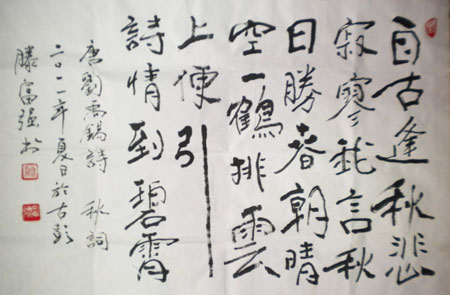 自古逢秋悲
寂寥我言秋
日勝春朝晴
空一鶴排雲
上便引
詩情到碧霄
唐劉禹錫詩 秋詞
二〇一一年夏日於古彭
滕富强书